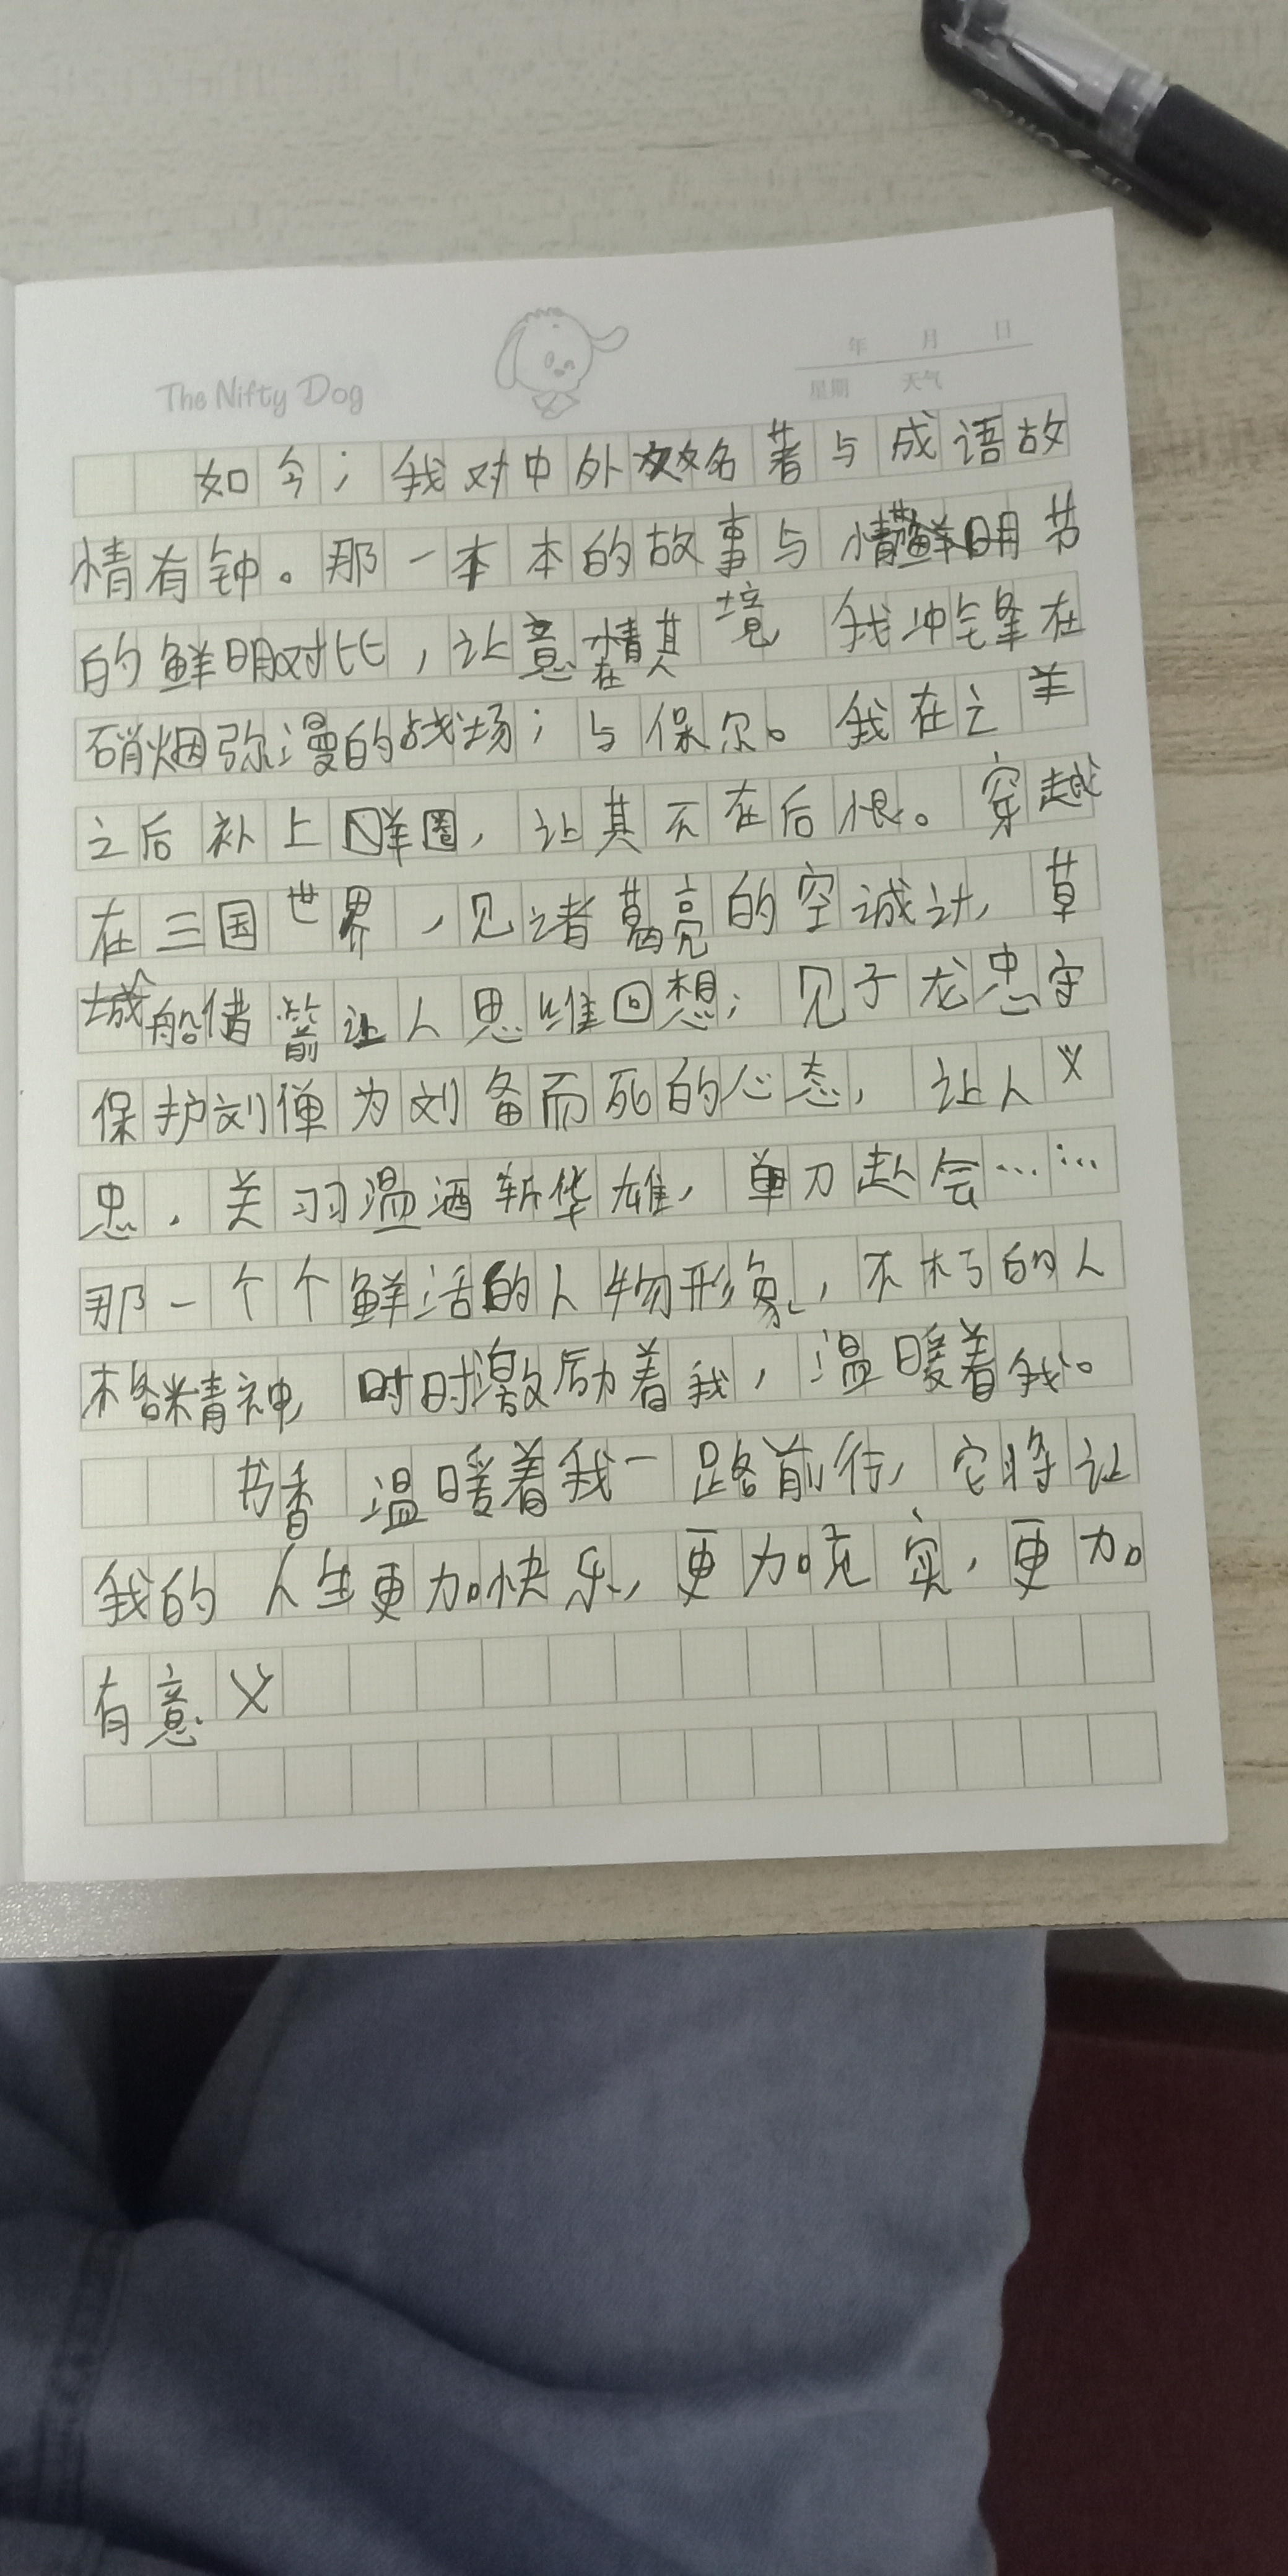 The Nifty Dog
年 月 日
星期 天气
如今；我对中外名著与成语故
情有钟。那一本本的故事与情鲜明节
的鲜明对比，让意在其境 我冲锋在
硝烟弥漫的战场；与保尔。我在亡羊
之后补上羊圈，让其不在后恨。穿越
在三国世界，见诸葛亮的空诚计，草
城船借箭让人思维回想；见子龙忠守
保护刘惮为刘备而死的心态，让人义
忠，关羽温酒斩华雄，单刀赴会……
那一个个鲜活的人物形象，不朽的人
格精神，时时激励着我，温暖着我。
书香温暖着我一路前行，它将让
我的人生更加快乐，更加充实，更加
有意义